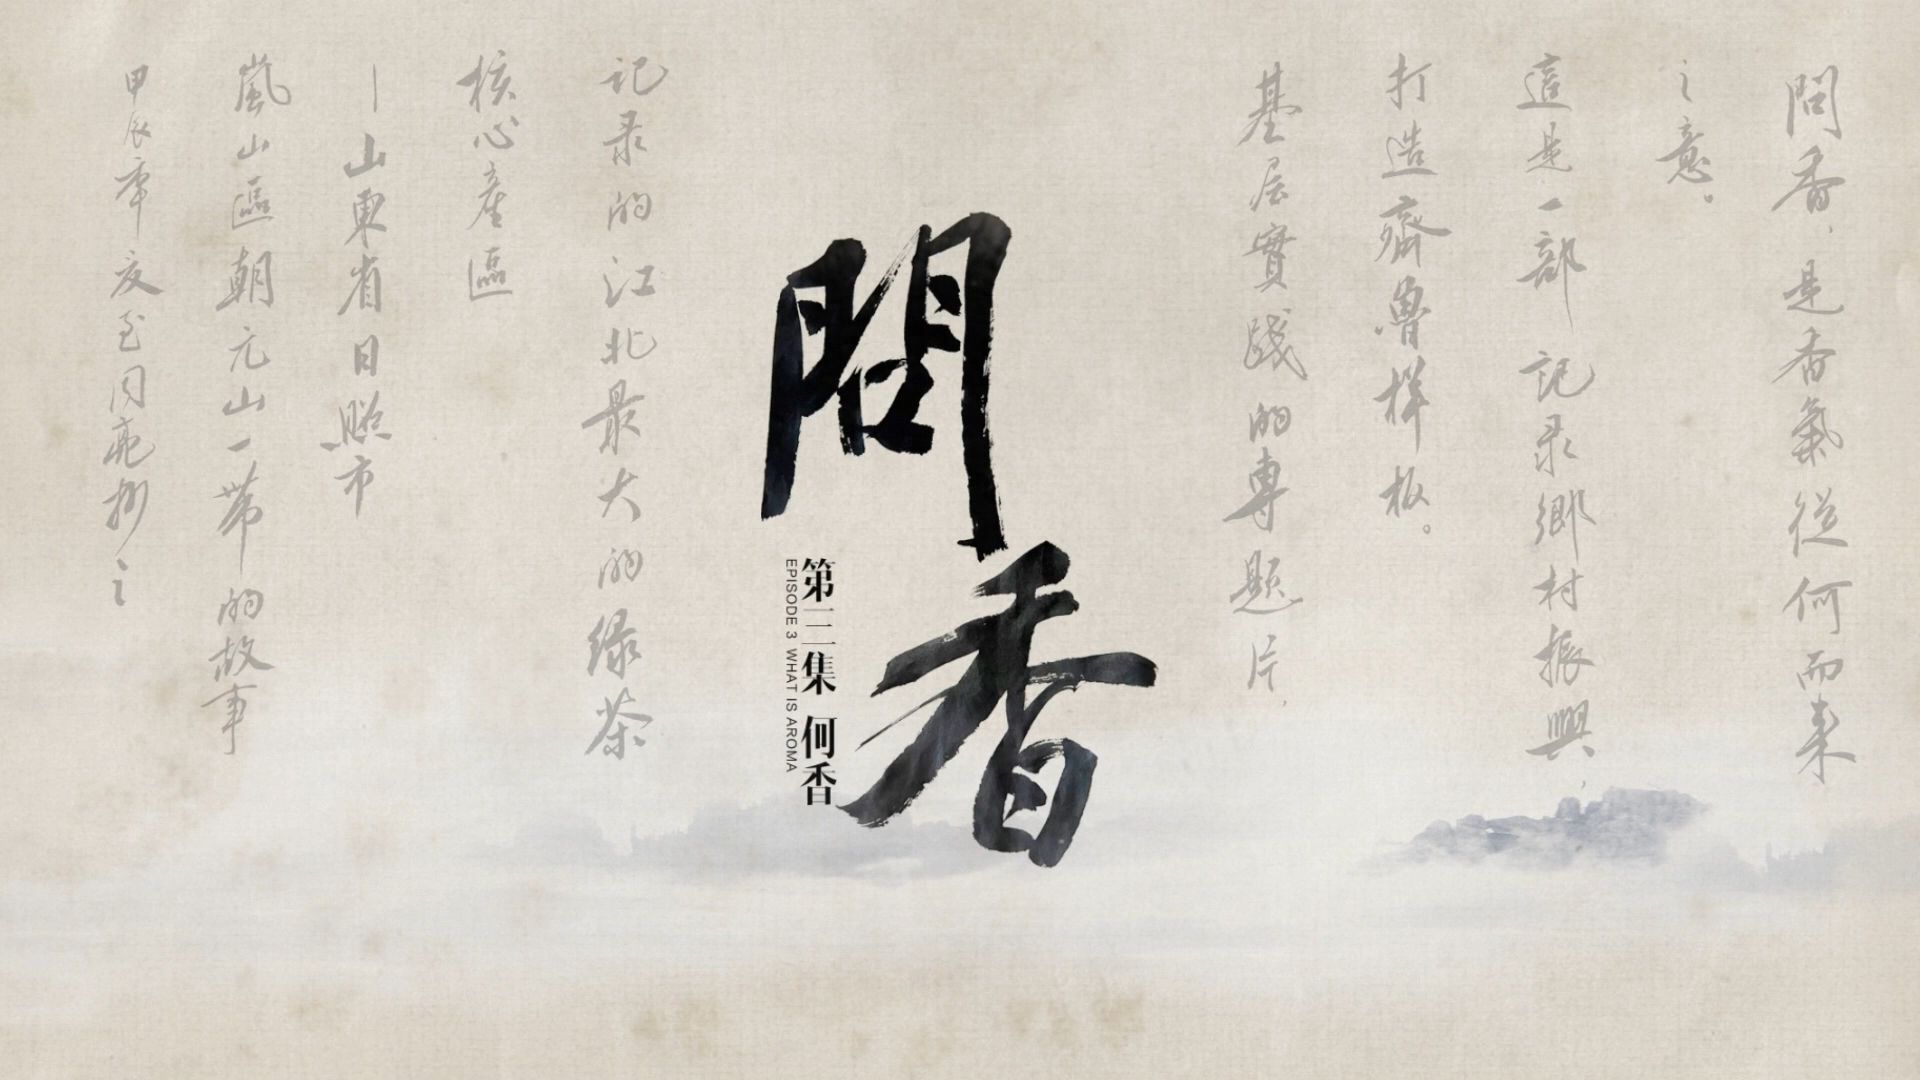 問香，是香氣從何而来
之意。
這是一部记录鄉村振興，
打造齊魯样板。
基层實踐的專题片，
問香
第三集 何香
EPISODE 3 WHAT IS AROMA
记录的江北最大的绿茶
核心產區
—山東省日照市
嵐山區朝元山一带的故事
甲辰年夏至闫亮抄之